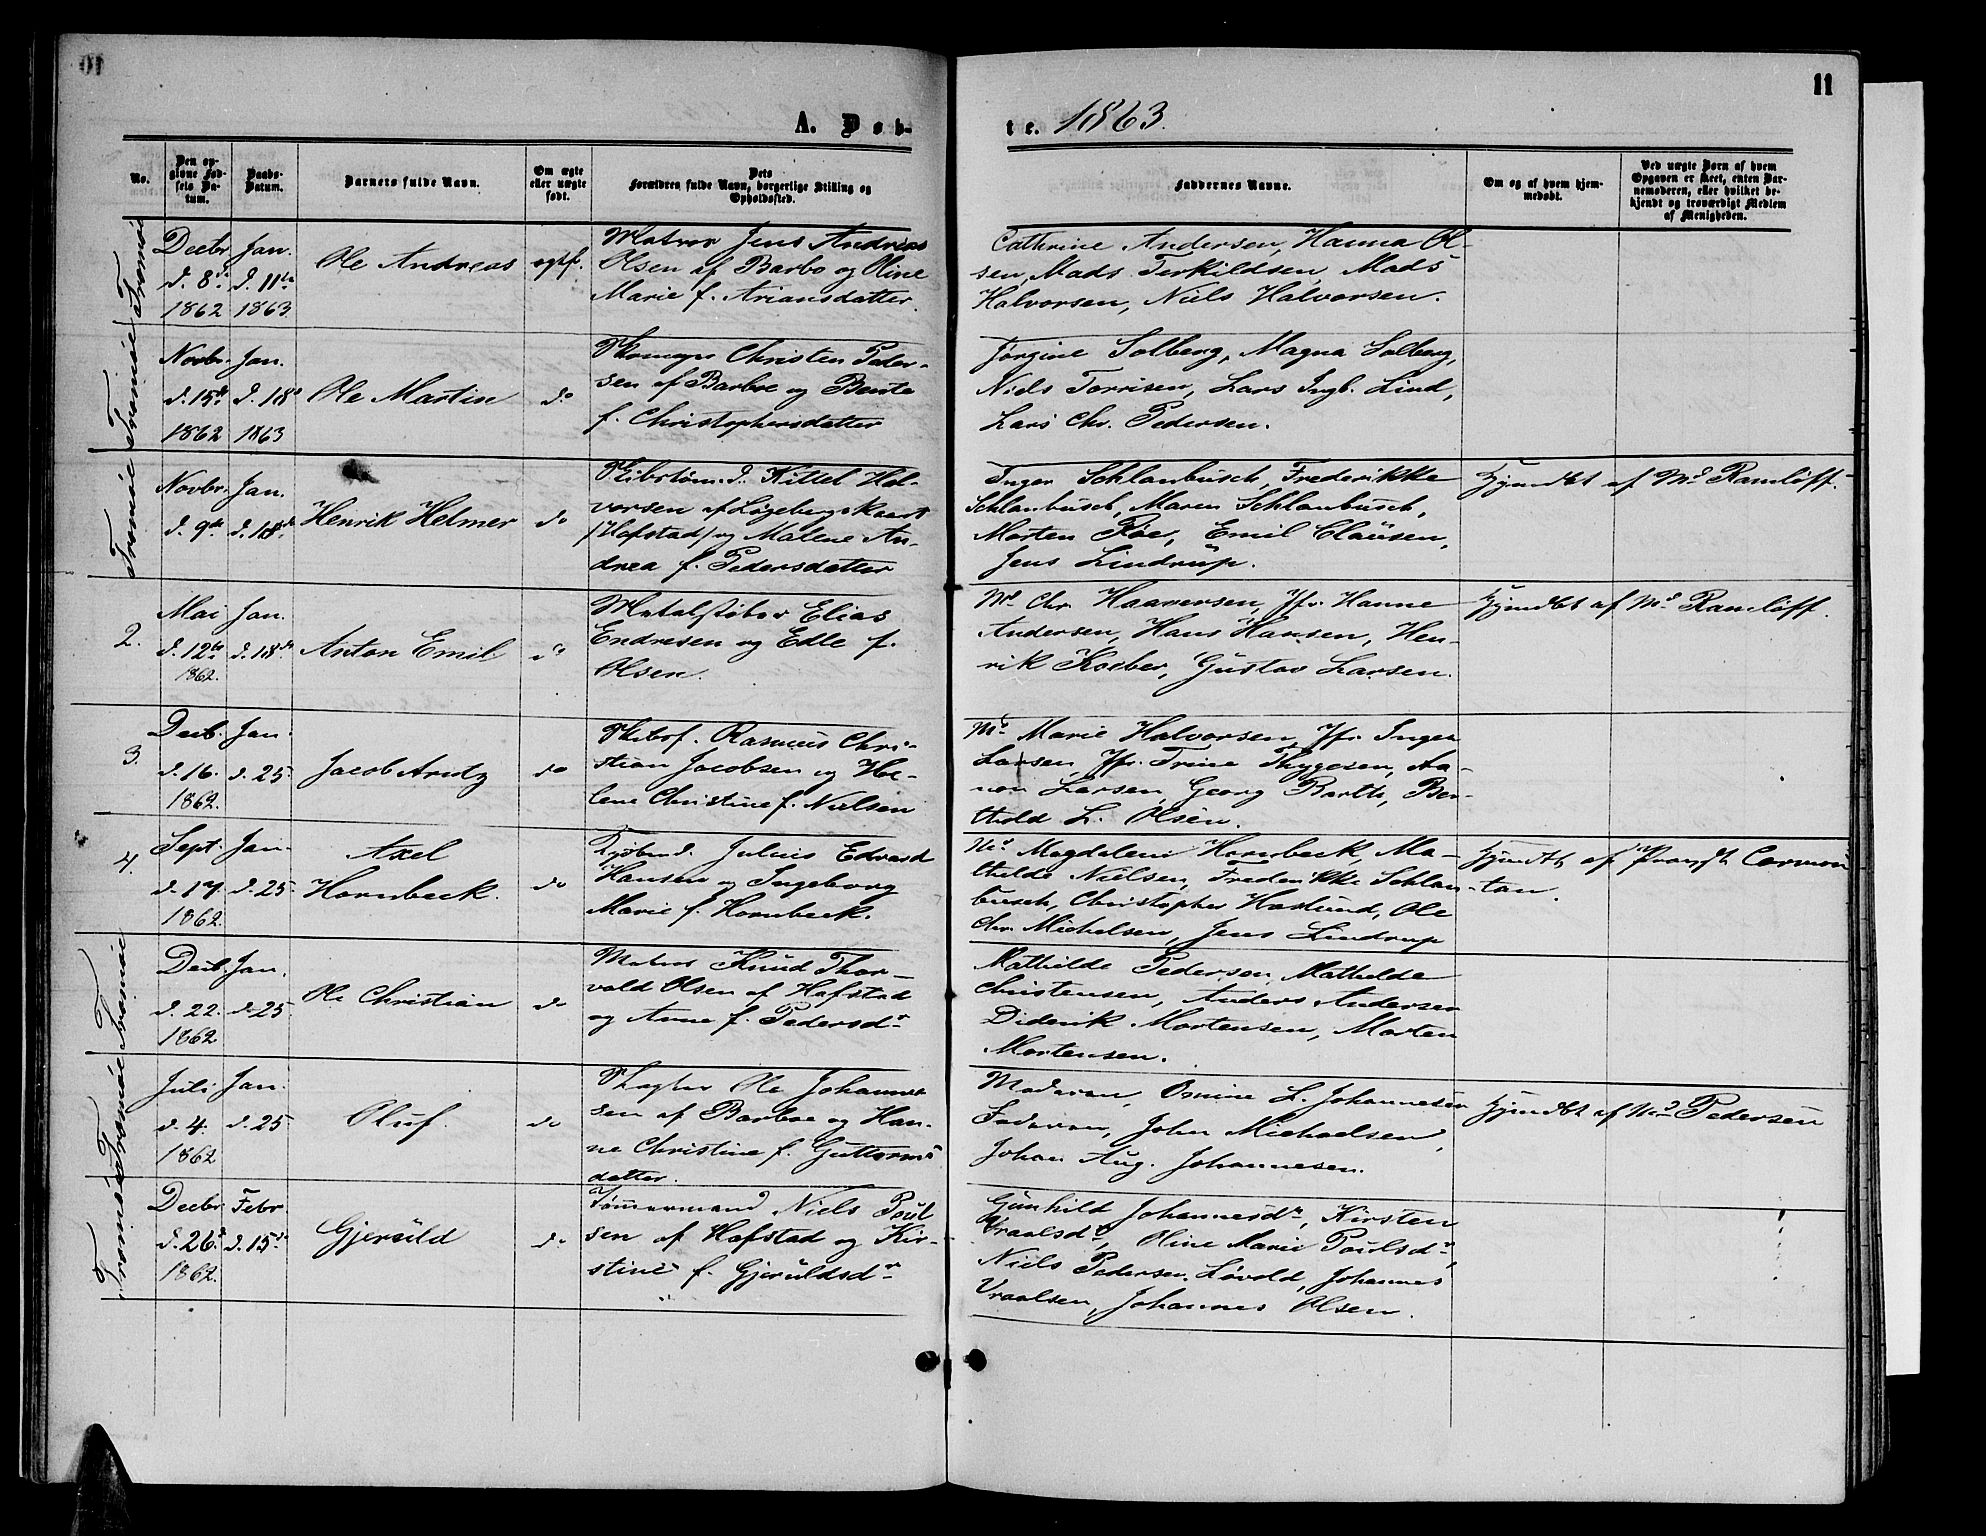 10
11
A. Døb-
te. 1863.
No.
Den op-
givne Fød-
sels Da-
tum.
Daabs-
Datum.
Barnets fulde Navn.
Om ægte
eller uægte
født.
Dets
Forældres fulde Navn, borgerlige Stilling og
Opholdssted.
Faddernes Navne.
Om og af hvem hjem-
medøbt.
Ved uægte Børn af hvem
Opgaven er skeet, enten Bar-
nemoderen, eller hvilket be-
kjendt og troværdigt Medlem
af Menigheden.
Tromøe
Decbr
d. 8de
1862
Jan.
d. 11te
1863
Ole Andreas
ægtf.
Matros Jens Andreas
Olsen af Barbo og Oline
Marie f. Ariansdatter.
Cathrine Andersen, Hanna Ol-
sen, Mads Terkildsen, Mads
Halvorsen, Niels Halvorsen.
Tromøe
Novbr.
d. 15de
1862
Jan.
d. 18
1863
Ole Martin
do
Christen Peder-
sen af Barboe og Bente
f. Christophersdatter
Jørgine Solberg, Magna Solberg,
Niels Torrisen, Lars Ingb. Lind,
Lars Chr. Pedersen.
Tromøe
Novbr.
d. 9de
Jan.
d. 18de
Henrik Helmer
do
Skibstømd. Kittel Hal-
vorsen af Løgebergskaart
/Hafstad/ og Malene An-
drea f. Pedersdatter
Inger Schlanbusch, Frederikke
Schlanbusch, Maren Schlanbusch,
Morten Føe, Emil Claüsen,
Jens Lindrup.
Hjemdbt af Md Ramløff.
2.
Mai
d. 12te
1862.
Jan.
d. 18de
Anton Emil
do
Metalstøber Elias
Endresen og Edle f.
Olsen.
Md Chr. Haavorsen, Jfr. Hanne
Andersen, Hans Hansen, Hen-
rik Koeber, Gustav Larsen.
Hjemdbt af Md Ramløff.
3.
Decb.
d. 16.
1862.
Jan.
d. 25
Jacob Arntz
do
Skibsf. Rasmus Chri-
stian Jacobsen og He-
lene Christine f. Nielsen
Md Marie Halvorsen, Jfr. Inger
Larsen, Jfr. Trine Thygesen, Aa-
non Larsen, Georg Barth, Ber-
thold L. Olsen.
4.
Sept.
d. 17.
1862.
Jan.
d. 25
Axel
Hornbeck.
do
Julius Edvard
Hansen og Ingeborg
Marie f. Hornbeck.
Md Magdalene Hornbeck, Ma-
thilde Nielsen, Frederikke Schlan-
busch, Christopher Haslund, Ole
Chr. Michelsen, Jens Lindrup
Hjemdbt af Provst Cormon-
tan.
Tromøe
Decb.
d. 22.
1862
Jan.
d. 25
Ole Christian
do
Matros Knud Thor-
vald Olsen af Hafstad
og Anne f. Pedersdr
Mathilde Pedersen, Mathilde
Christensen, Anders Andersen
Diderik Mortensen, Morten
Mortensen.
Tromøe
Juli
d. 4.
1862
Jan.
d. 25
Oluf.
do
Slagter Ole Johannes
sen af Barboe og Han-
ne Christine f. Guttorms
datter.
Moderen, Osmine L. Johannesen
Faderen, John Michaelsen,
Johan Aug. Johannesen.
Hjemdbt af Md Pedersen
Tromøe
Decbr
d. 26de
1862.
Febr
d. 15de
Gjerüld
do
Tømmermand Niels Poül
sen af Hafstad og Kir-
stine f. Gjerüldsdr
Günhild Johannesdr, Kirsten
Vraalsdr, Oline Marie Poülsdr,
Niels Pedersen Løvold, Johannes
Vraalsen, Johannes Olsen.